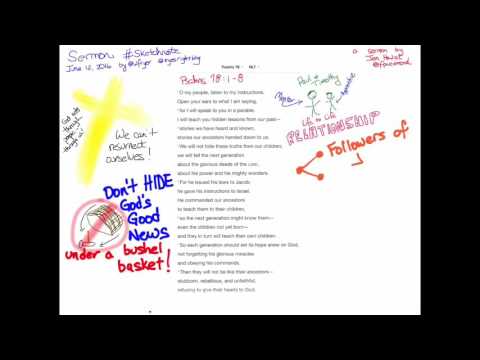 Sermon #sketchnote
June 12, 2016 by @wfryer
Psalms 78 NLT
Psalms 78:1-8
O my people, listen to my instructions.
Open your ears to what I am saying,
for I will speak to you in a parable.
I will teach you hidden lessons from our past—
stories we have heard and known,
stories our ancestors handed down to us.
We will not hide these truths from our children;
we will tell the next generation
about the glorious deeds of the LORD,
about his power and his mighty wonders.
For he issued his laws to Jacob;
he gave his instructions to Israel.
He commanded our ancestors
to teach them to their children,
so the next generation might know them—
even the children not yet born—
and they in turn will teach their own children.
So each generation should set its hope anew on God,
not forgetting his glorious miracles
and obeying his commands.
Then they will not be like their ancestors—
stubborn, rebellious, and unfaithful,
refusing to give their hearts to God.
God acts
through
people
We can't
resurrect
ourselves!
Don't HIDE
God's
Good
News
under a bushel
basket!
Paul & Timothy
Life to Life
RELATIONSHIP
Followers of
a sermon by